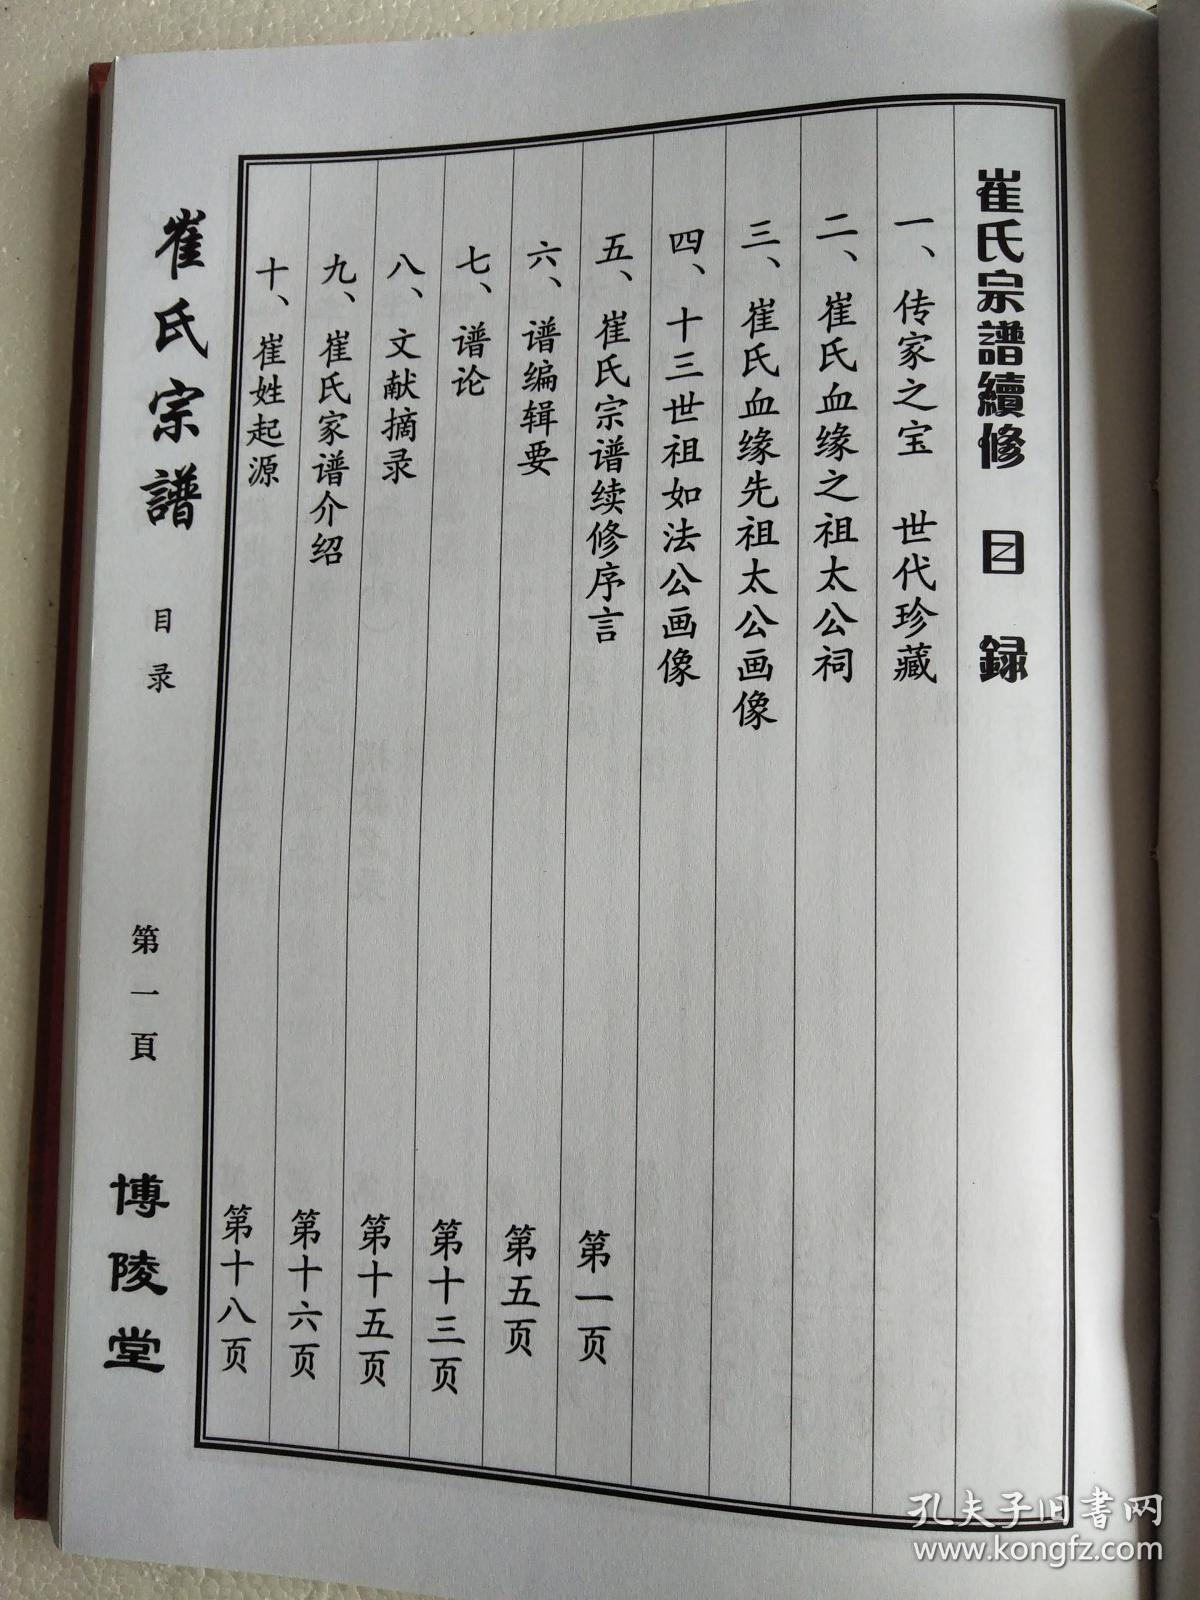 崔氏宗譜續修 目 録
一、传家之宝 世代珍藏
二、崔氏血缘之祖太公祠
三、崔氏血缘先祖太公画像
四、十三世祖如法公画像
五、崔氏宗谱续修序言 第一页
六、谱编辑要 第五页
七、谱论 第十三页
八、文献摘录 第十五页
九、崔氏家谱介绍 第十六页
十、崔姓起源 第十八页
崔氏宗譜 目录 第一頁 博陵堂
孔夫子旧書网
www.kongfz.com